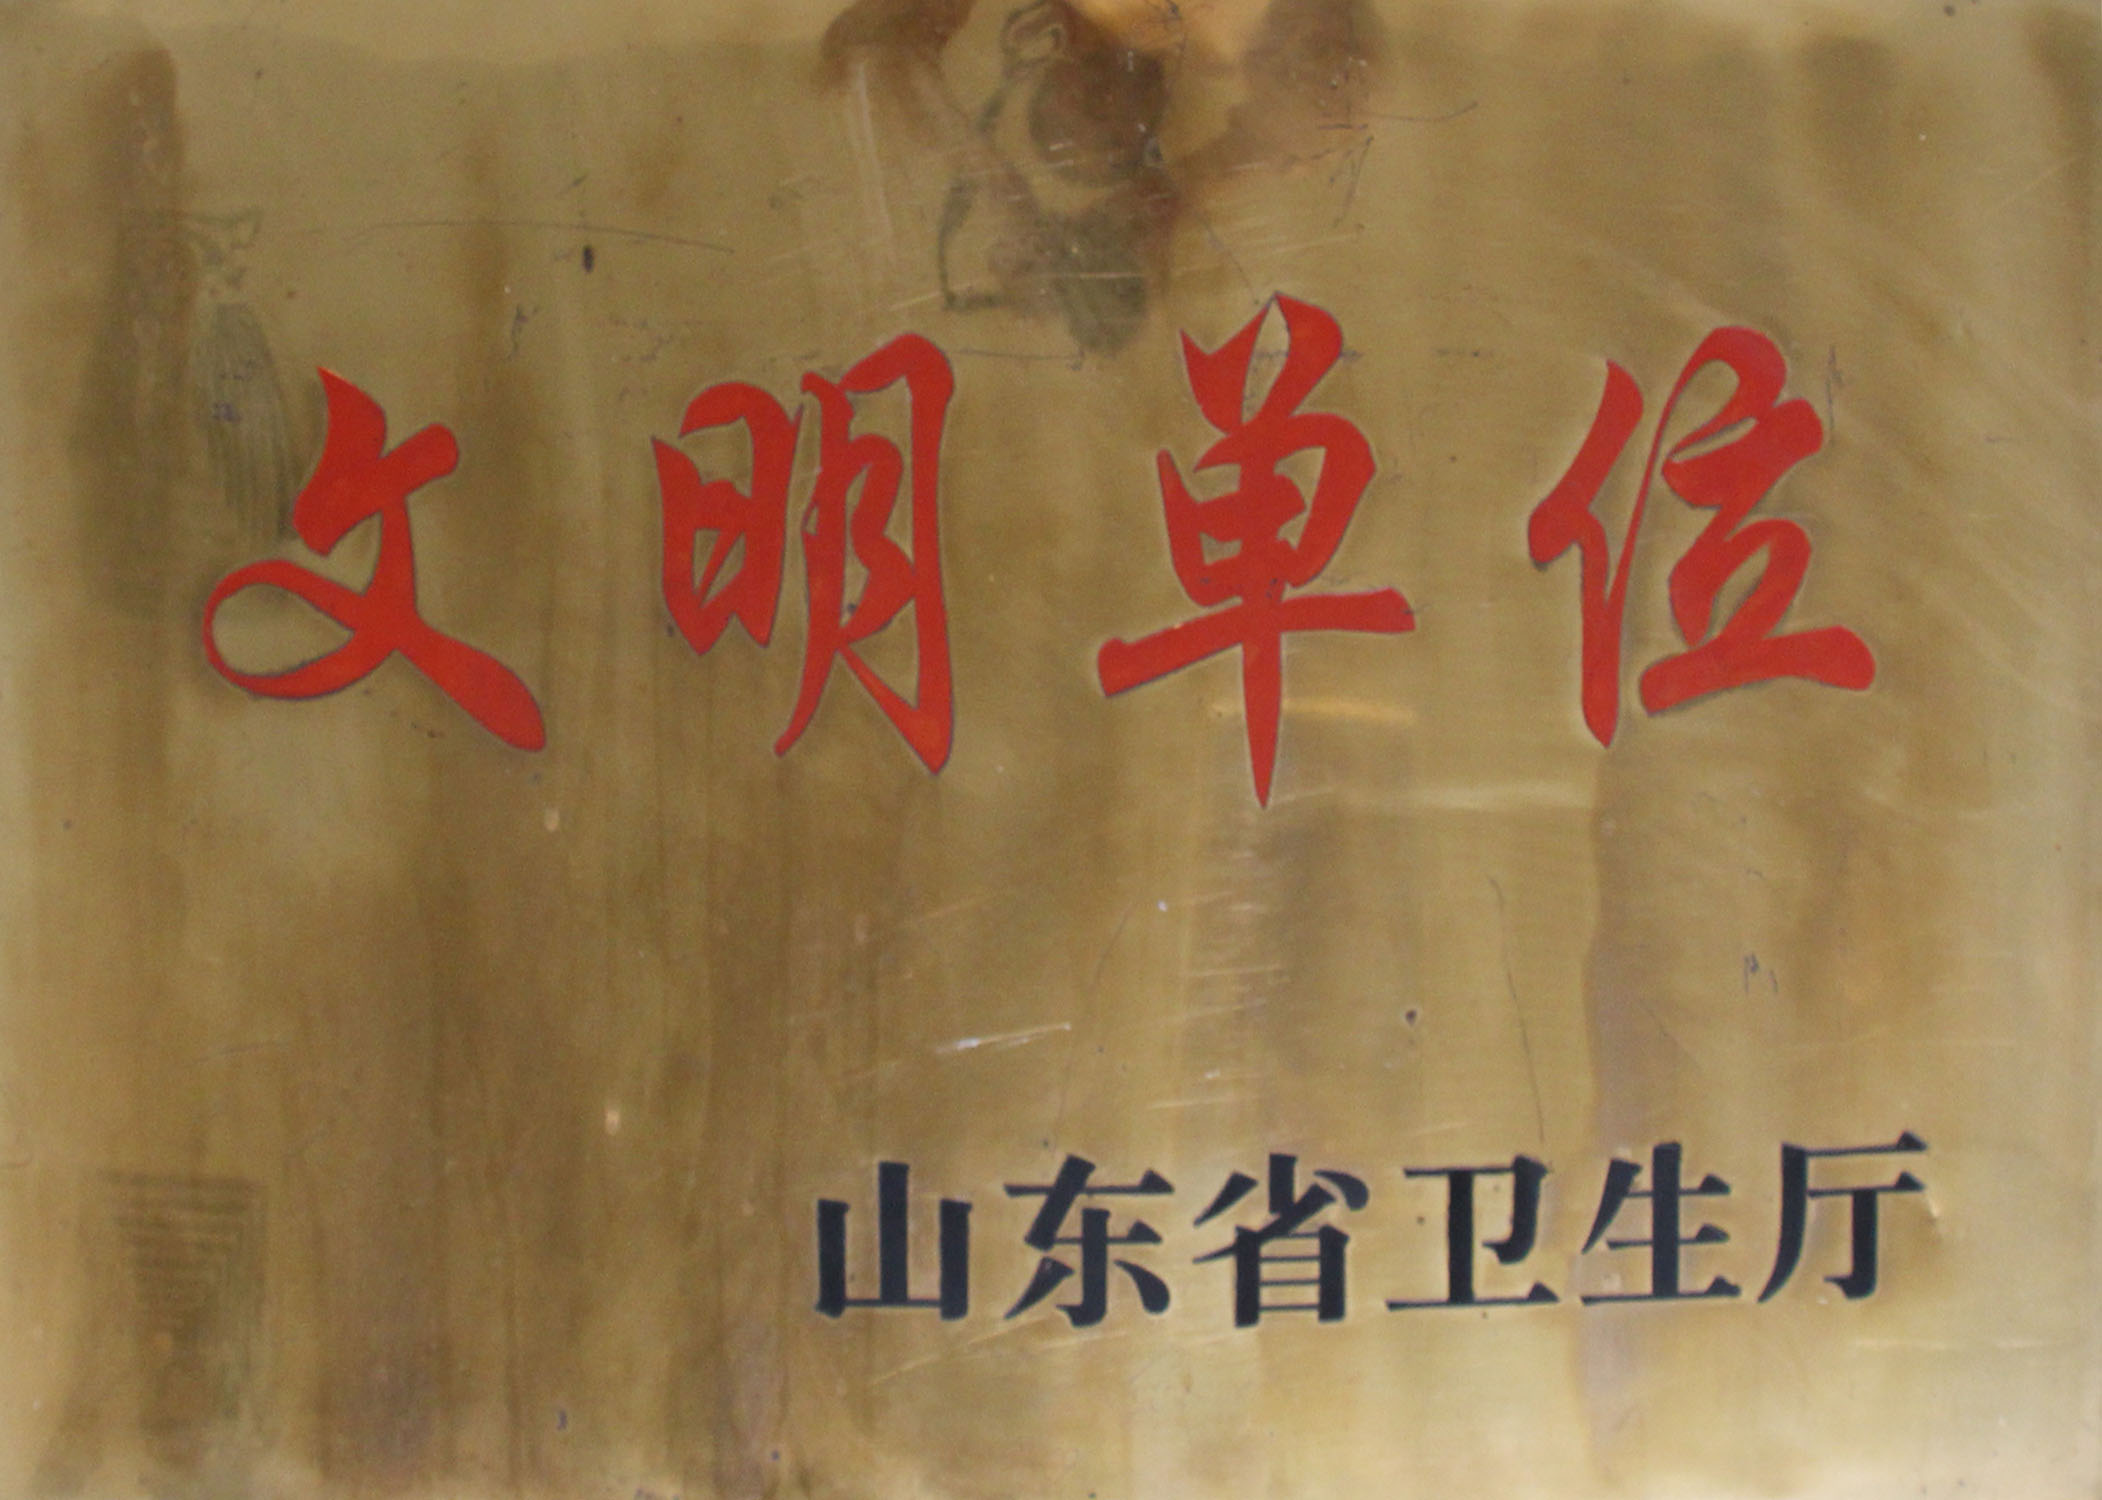 文明单位
山东省卫生厅